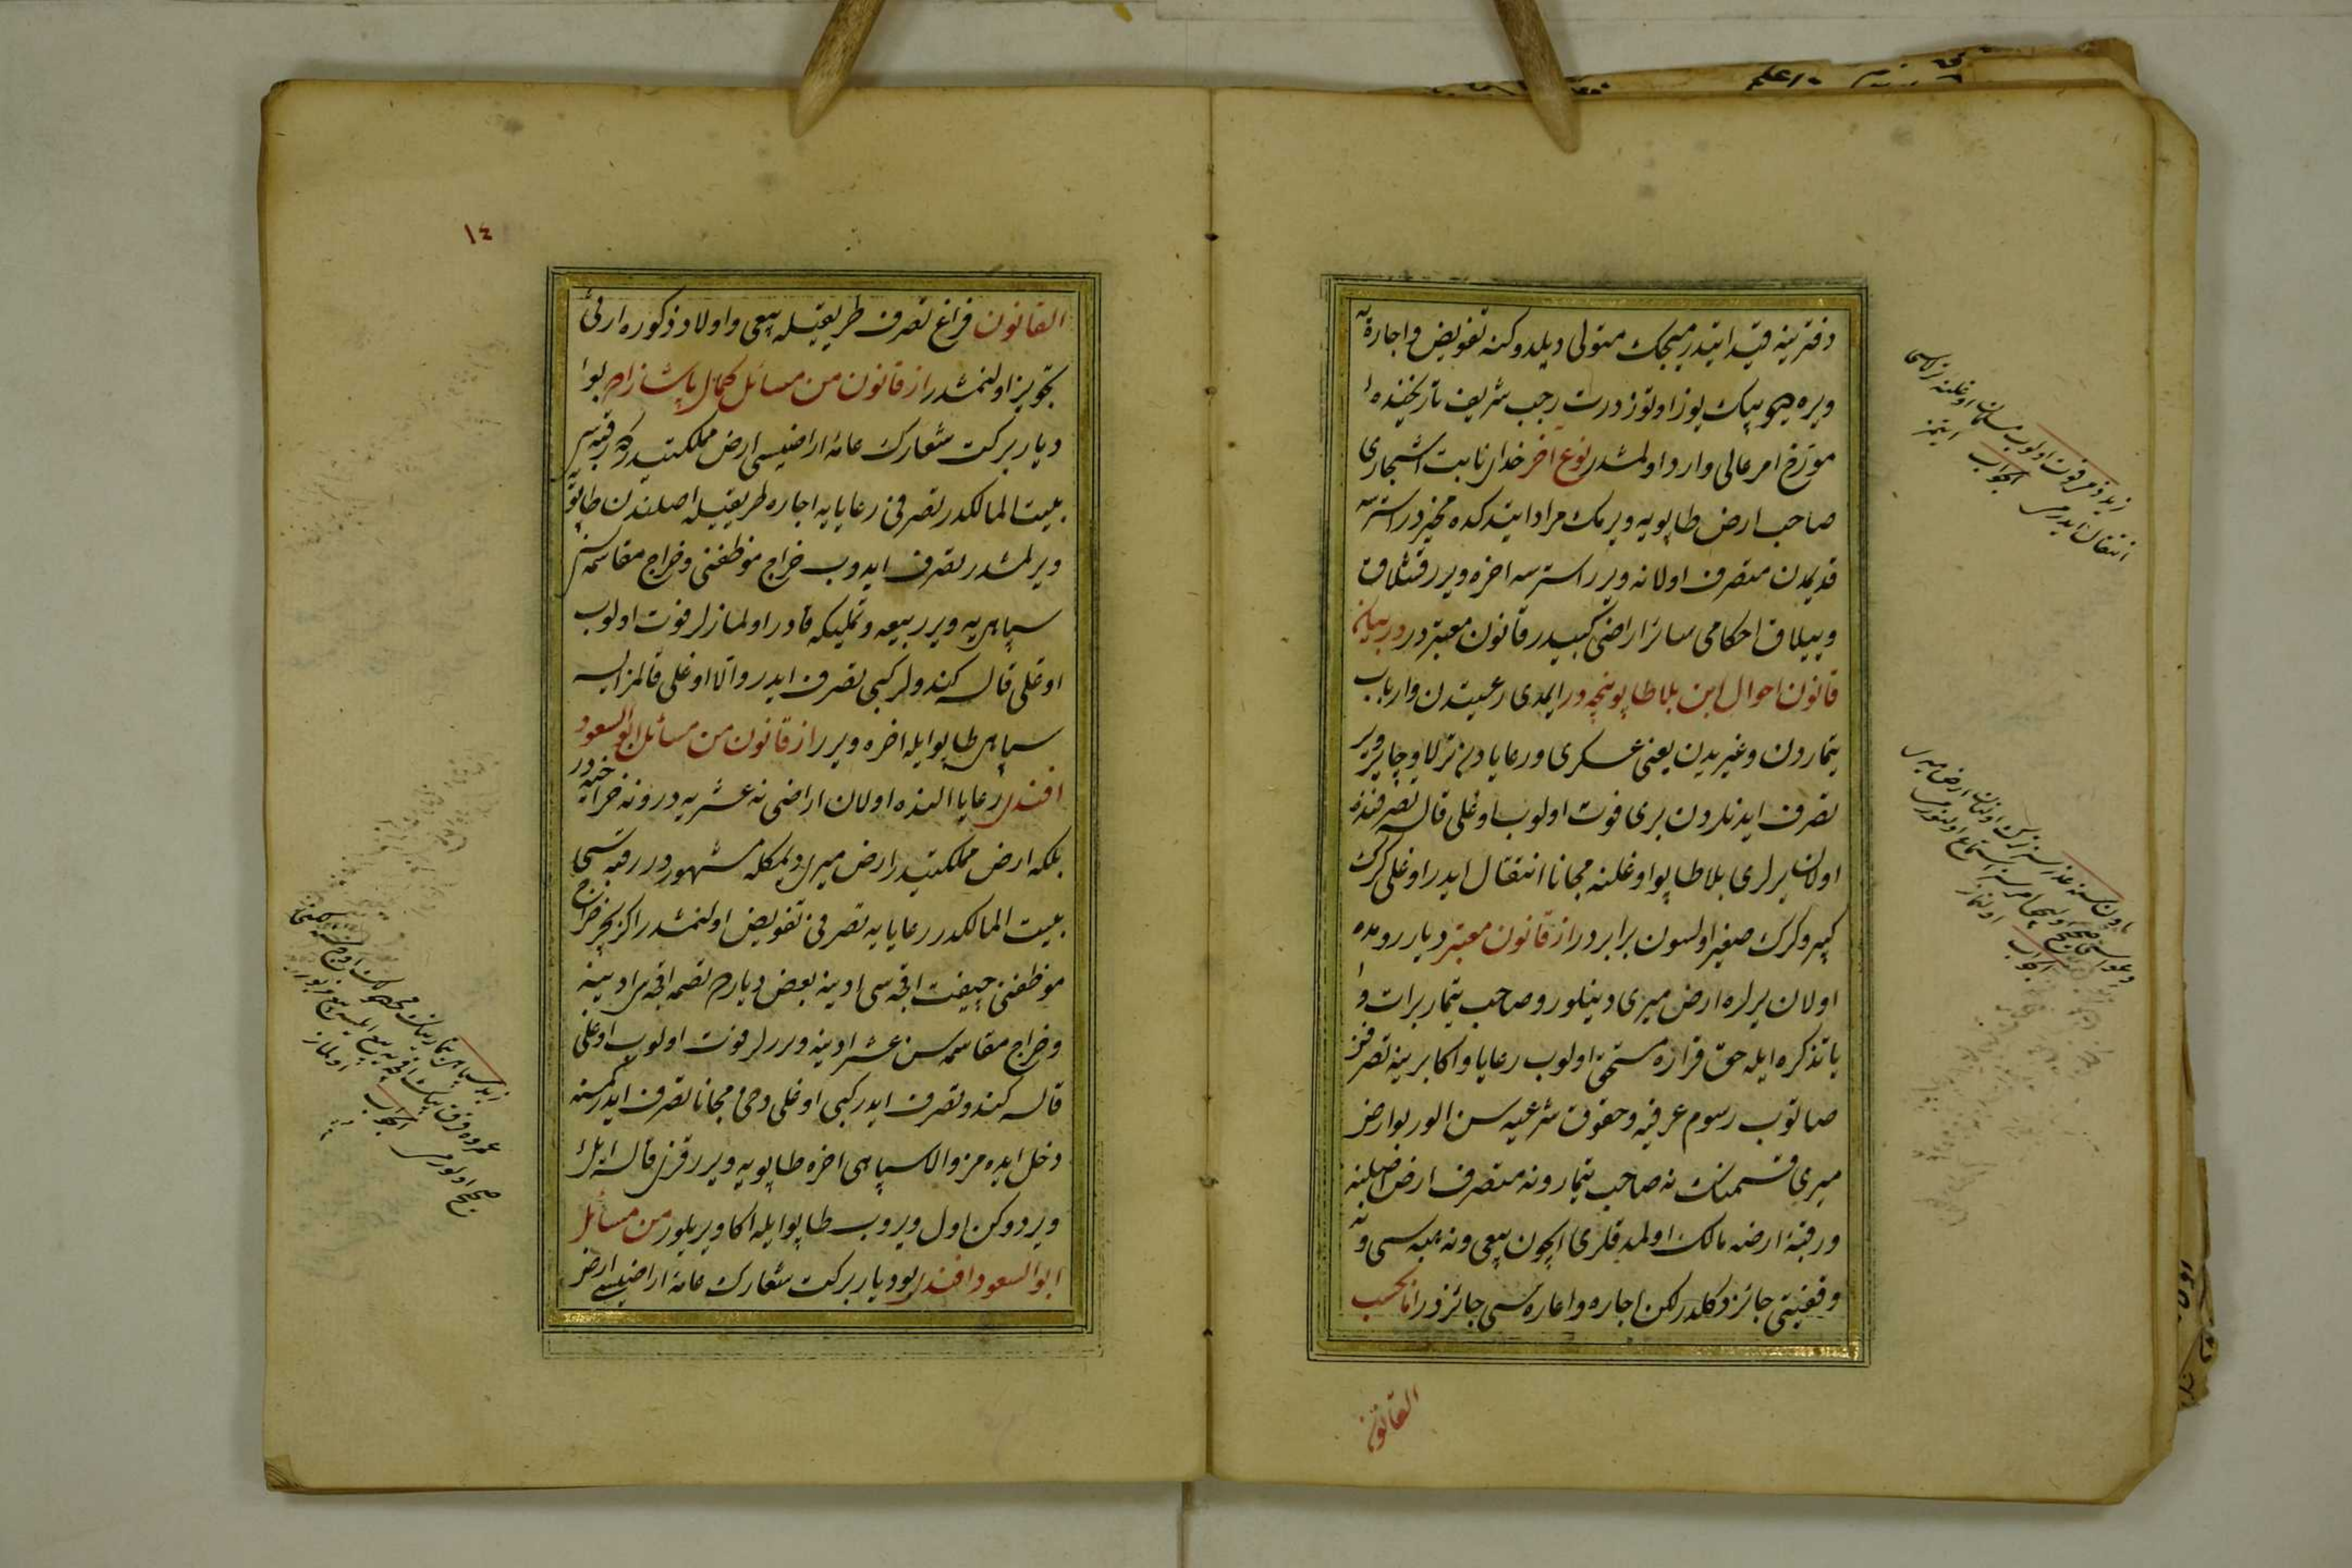 دفترینه قید ایتدرمیجك متولی دیلدوكنه تفویض و اجارەیه
ویره هیچو بیك یوز اوتوز درت رجب شریف تاریخنده
مورخ امر عالی وارد اولمشدر نوع اخر خدای نابت اشجاری
صاحب ارض طاپویه ویرمك مراد ایتدكده مخیردر استرسه
قدیمدن متصرف اولانه ویرر استرسه اخره ویرر قشلاق
و ییلاق احكامی سائر اراضی كبیدر قانون معتبر در در بیان
قانون احوال ابن بلا طاپو نیجه در ایمدی رعیتدن و ارباب
تیماردن و غیریدن یعنی عسكری و رعایادن ترلا و چایر و یر
تصرف ایدنلردن بری فوت اولوب اوغلی قالسه تصرفنده
اولان یرلری بلا طاپو اوغلنه مجانا انتقال ایدر اوغلی كرك
كبیر و كرك صغیر اولسون برابردر از قانون معتبر دیار رومده
اولان یرلره ارض میری دینلور و صاحب تیمار برات و
یا تذكره ایله حق قراره مستحق اولوب رعایا و اكابرینه تصرفنی
صاتوب رسوم عرفیه و حقوق شرعیه سن الور بو ارض
میری قسمنك نه صاحب تیمار و نه متصرف ارض اصلنه
و رقبۀ ارضه مالك اولمدقلری اچون بیعی و نه هبه سی و نه
وقفیتی جائز دكلدر لكن اجاره و اعاره سی جائزدر اما بحسب
القانون
زید ذمی فوت اولوب مسلمان اوغلنه ترلاسی
انتقال ایدرمی الجواب ایتمز
الجواب اولنماز
١٤
القانون فراغ تصرف طریقیله بیعی و اولاد ذكوره ارثی
تجویز اولنمشدر از قانون من مسائل كمال پاشا زاده بو
دیار بركت شعارك عامۀ اراضیسی ارض مملكتیدر كه رقبه سی
بیت المالكدر تصرفی رعایایه اجاره طریقیله اصلندن طاپویه
ویرلمشدر تصرف ایدوب خراج موظفنی و خراج مقاسمه سن
سپاهیه ویرر بیعه و تملیكه قادر اولمازلر فوت اولوب
اوغلی قالسه كندولر كبی تصرف ایدر و الا اوغلی قالمز ایسه
سپاهی طاپو ایله اخره ویرر از قانون من مسائل ابو السعود
افندی رعایا النده اولان اراضی نه عشریه در و نه خراجیه در
بلكه ارض مملكتیدر ارض میری دیمكله مشهوردر رقبه سی
بیت المالكدر رعایایه تصرفی تفویض اولنمشدر اكوب بچوب خراج
موظفنی چیفت اقچه سی ادینه بعض دیارده تصمه اقچه سی ادینه
و خراج مقاسمه سن عشر ادینه ویررلر فوت اولوب اوغلی
قالسه كندو تصرف ایدر كبی اوغلی دخی مجانا تصرف ایدر كمسنه
دخل ایده مز و الا سپاهی اخره طاپویه ویرر قزی قالسه ایلك
ویردوكن اول ویروب طاپو ایله اكا ویریلور من مسائل
ابو السعود افندی بو دیار بركت شعارك عامۀ اراضیسی ارض
صحیح اولورمی الجواب اولماز